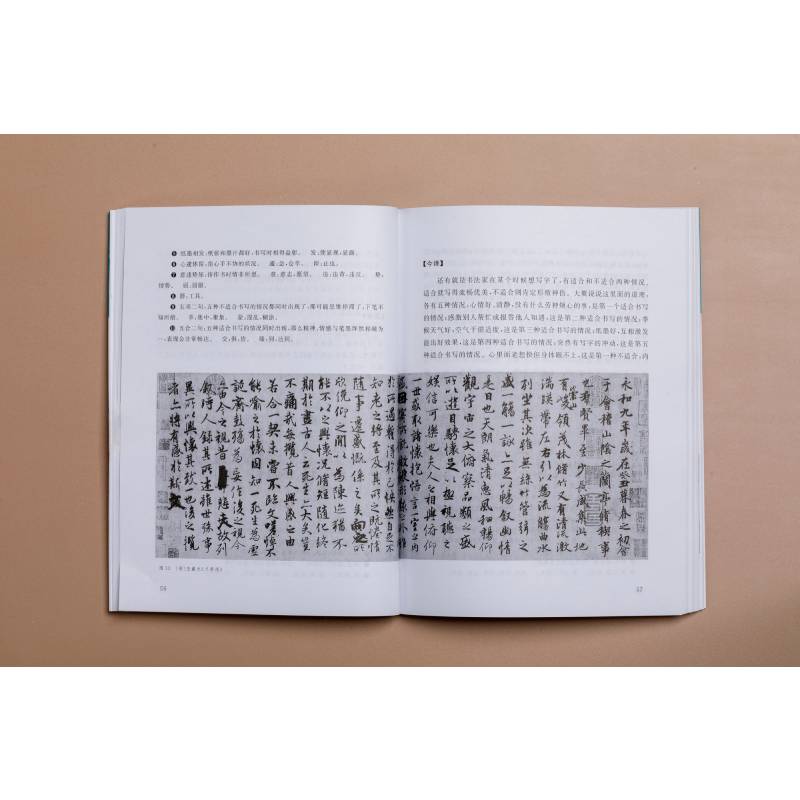 ⑤ 纸墨相发:纸张和墨汁都好,书写时相得益彰。 发:使显现,显露。
⑦ 意违势屈: 意:意志,愿望。 违:违背,违反。 势:
情势。 屈:屈服。
⑧ 器:工具。
⑨ 五乖二句:五种不适合书写的情况都同时出现了,
⑩ 五合二句:五种适合书写的情况同时出现,那么精神、情感与笔墨浑然相融为
一,表现会非常畅达。 交:俱,皆。 臻:到,达到。
56
【今译】
还有就是书法家在某个时候想写字了,有适合和不适合两种情况,
适合就写得流畅优美,不适合则肯定形销神伤。大概说说这里面的道理,
各有五种情况:心情好、清静,没有什么劳神烦心的事,是第一个适合书写
的情况;感激别人帮忙或报答他人知遇,这是第二种适合书写的情况;季
候天气好,空气干湿适度,这是第三种适合书写的情况;纸墨好,互相激发
能出好效果,这是第四种适合书写的情况;突然有写字的冲动,这是第五
种适合书写的情况。心里面老想快但身体跟不上,这是第一种不适合;内
永和九年歲在癸丑暮春之初會
于會稽山陰之蘭亭脩稧事
也羣賢畢至少長咸集此地
有崇山峻領茂林脩竹又有清流激
湍暎帶左右引以為流觴曲水
列坐其次雖無絲竹管弦之
盛一觴一詠亦足以暢敘幽情
是日也天朗氣清惠風和暢仰
觀宇宙之大俯察品類之盛
所以遊目騁懷足以極視聽之
娛信可樂也夫人之相與俯仰
一世或取諸懷抱悟言一室之內
於所遇蹔得於己怏然自足不
知老之將至及其所之既惓情
隨事遷感慨係之矣向之所
欣俛仰之間以為陳迹猶不
能不以之興懷況脩短隨化終
期於盡古人云死生亦大矣豈
不痛哉每攬昔人興感之由
若合一契未嘗不臨文嗟悼不
能喻之於懷固知一死生為虛
誕齊彭殤為妄作後之視今
亦由今之視昔悲夫故列
敘時人錄其所述雖世殊事
異所以興懷其致一也後之攬
者亦將有感於斯文
57